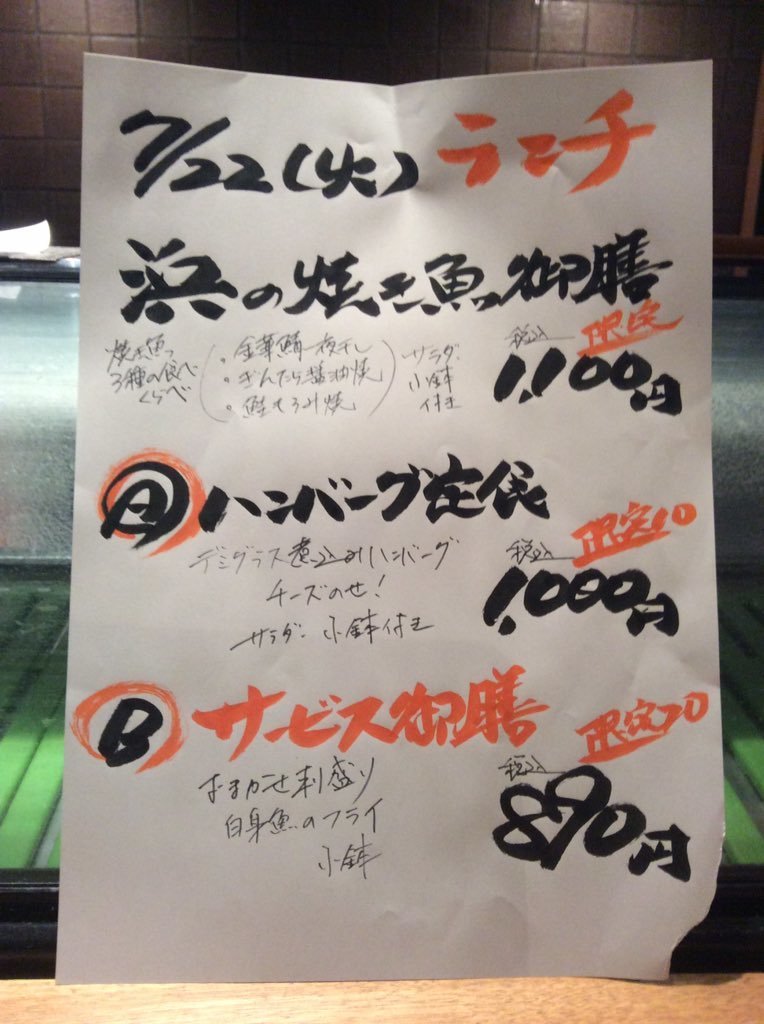 7/22(火) ランチ
浜の焼き魚御膳
限定
焼き魚
3種の食べ
くらべ
・金華鯖一夜干し
・ぎんだら醤油焼
・鮭もろみ焼
サラダ・
小鉢
付き
税込
1,100円
A ハンバーグ定食
限定10
デミグラス煮込みハンバーグ
チーズのせ!
サラダ・小鉢付き
税込
1,000円
B サービス御膳
限定20
おまかせ刺盛り
白身魚のフライ
小鉢
税込
890円